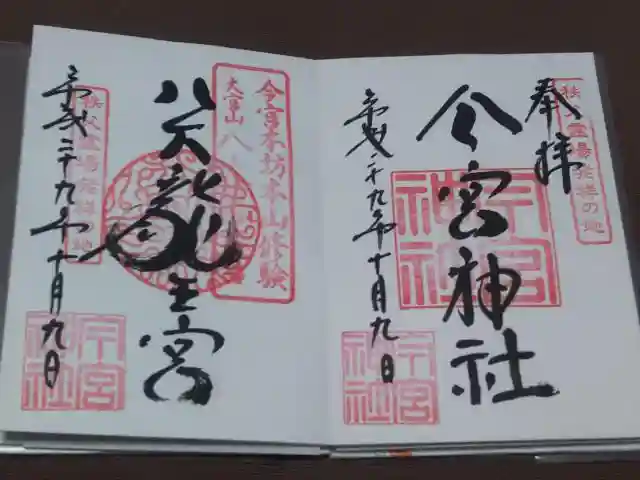 奉拝
秩父霊場発祥の地
今宮神社
今宮神社
平成二十九年十月九日
今宮神社
今宮本坊本山修験
大宮山
八大龍王宮
秩父霊場発祥の地
平成二十九年十月九日
今宮神社